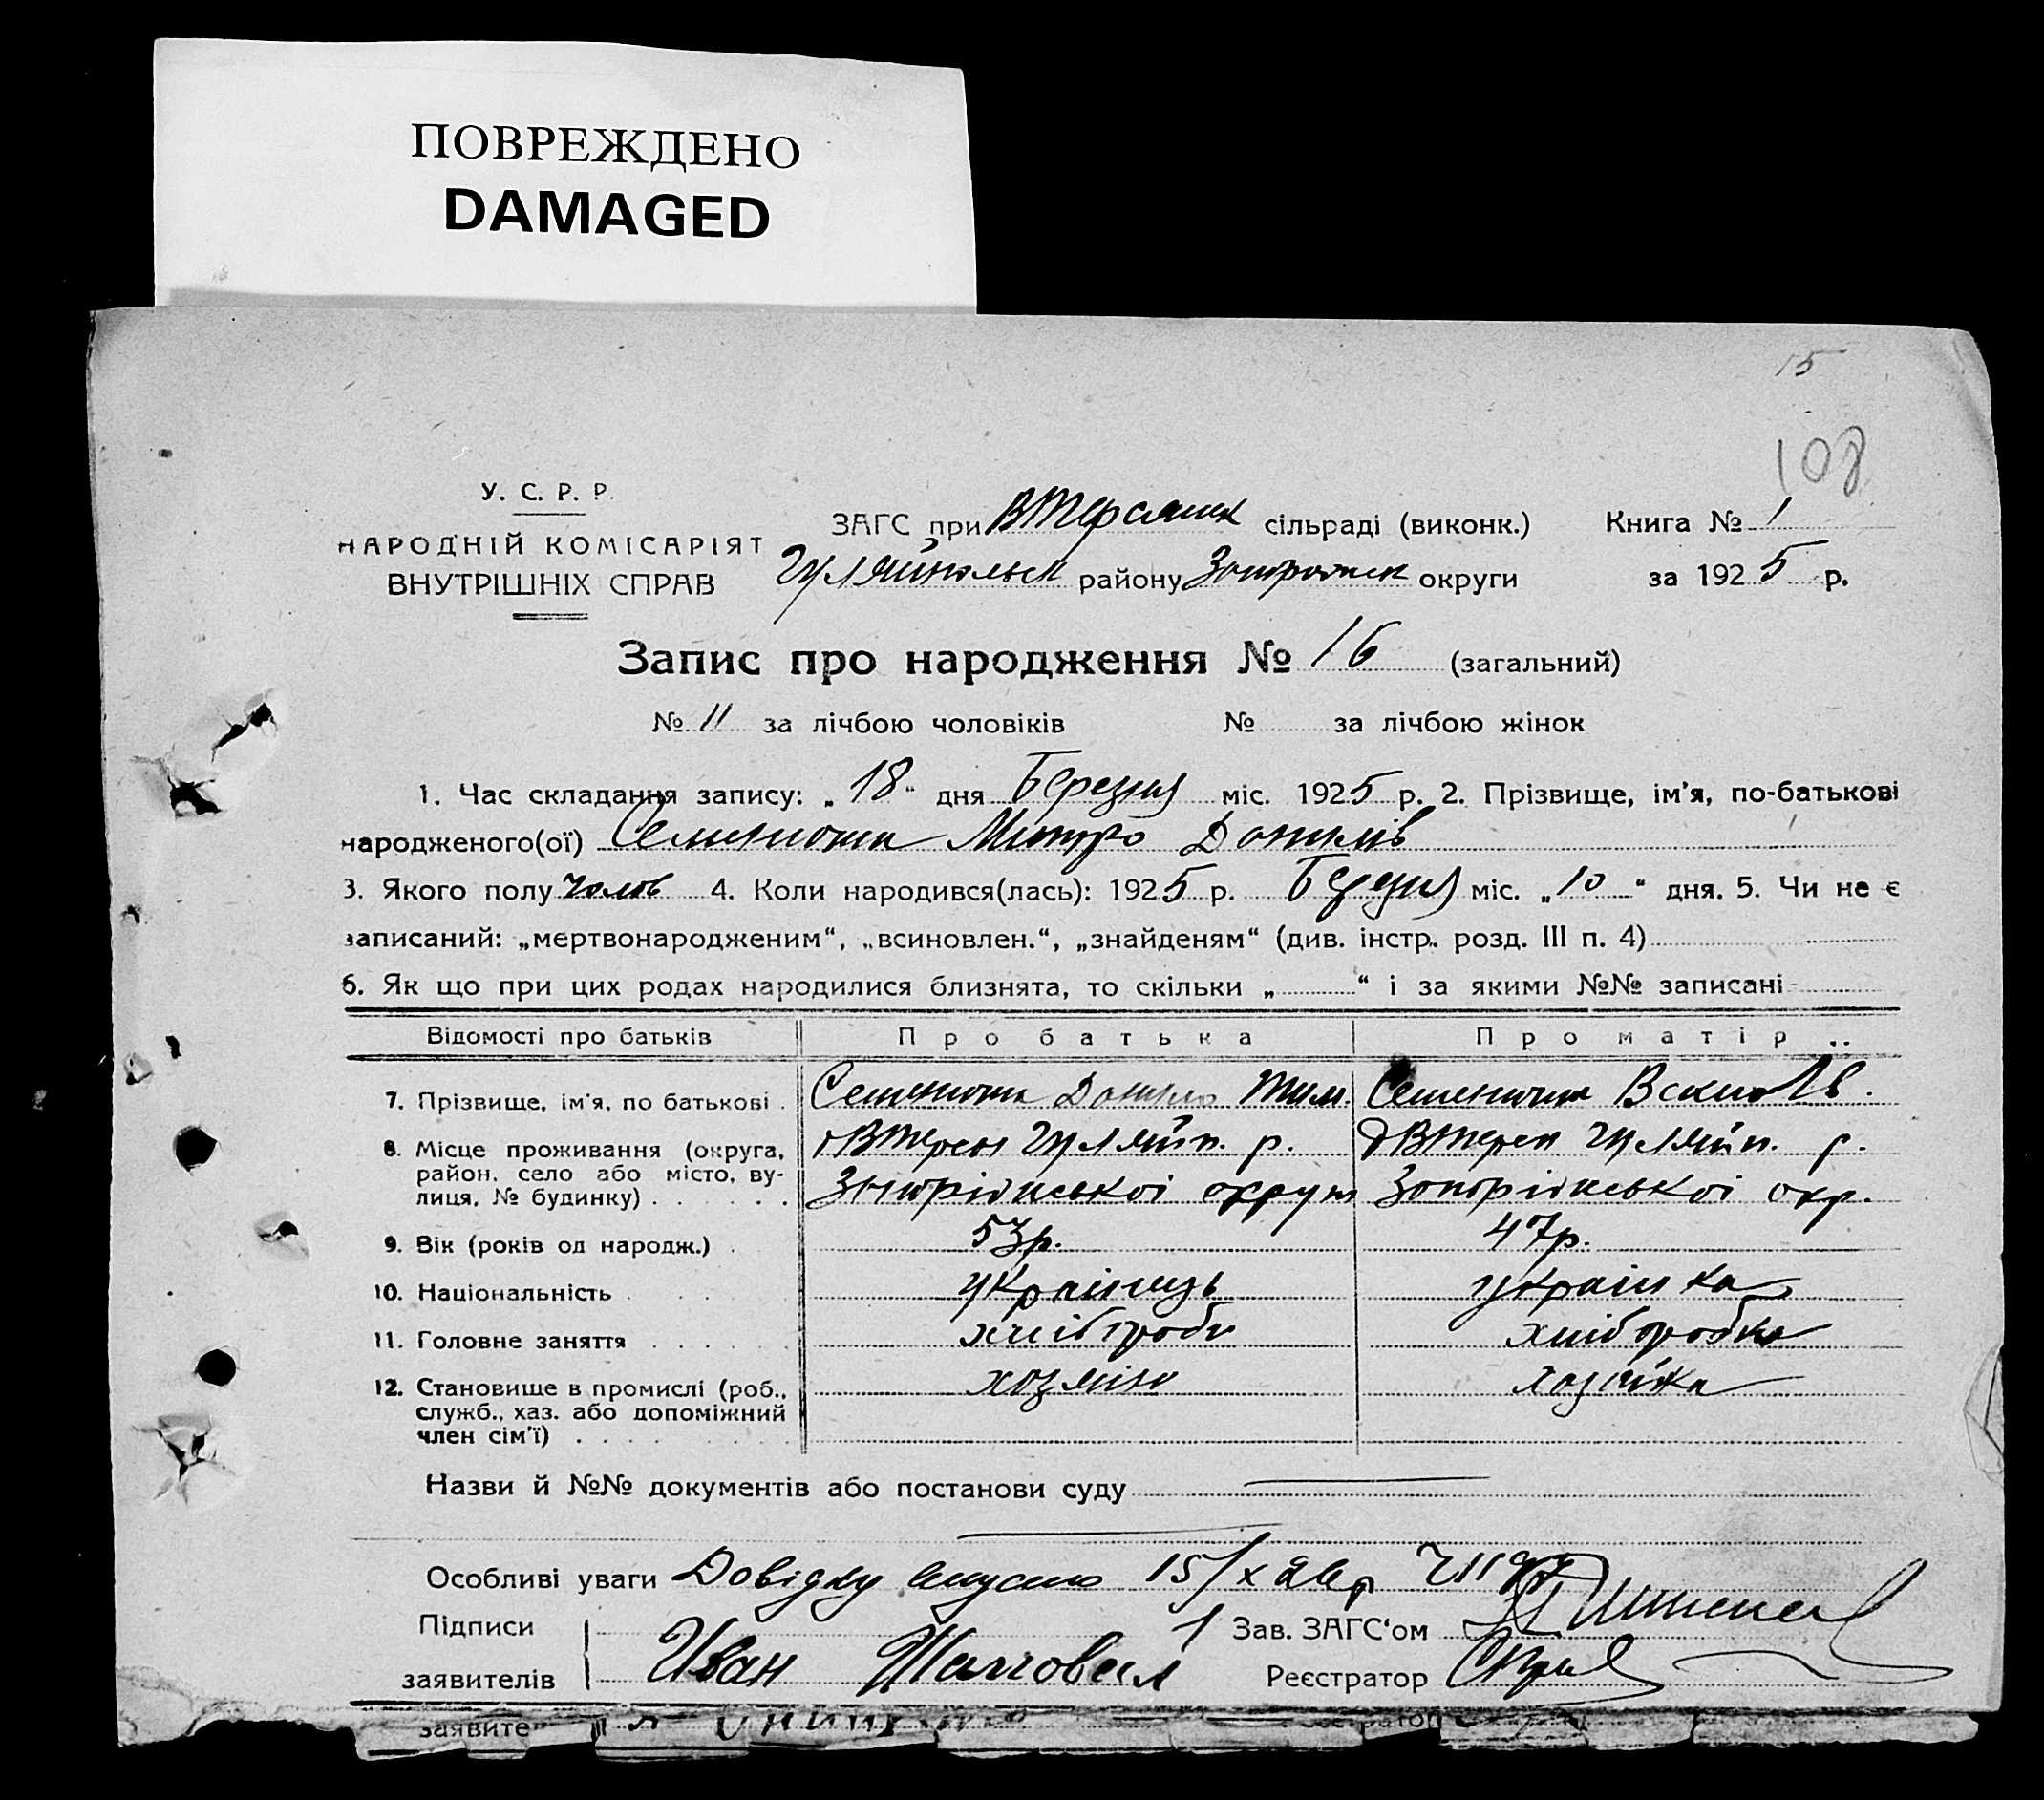 ПОВРЕЖДЕНО
DAMAGED
15
108
У. С. Р. Р.
НАРОДНІЙ КОМІСАРІЯТ
ВНУТРІШНІХ СПРАВ
ЗАГС при сільраді (виконк.)
Гуляйпольск району Запорожск округи
Книга № 1
за 1925 р.
Запис про народження № 16 (загальний)
№ 11 за лічбою чоловіків № за лічбою жінок
1. Час складання запису: „18“ дня Березня міс. 1925 р. 2. Прізвище, ім'я, по-батькові
народженого(ої) Семенюта Митро Данилів
3. Якого полу чолов 4. Коли народився(лась): 1925 р. Березня міс. „10“ дня. 5. Чи не є
записаний: „мертвонародженим“, „всиновлен.“, „знайденям“ (див. інстр. розд. III п. 4)
6. Як що при цих родах народилися близнята, то скільки „ “ і за якими №№ записані
Відомості про батьків Про батька Про матір
7. Прізвище, ім'я, по батькові Семенюта Данило Тим. Семенюта
8. Місце проживання (округа,
район, село або місто, ву-
лиця, № будинку)
Гуляйп. р. Гуляйп. р.
Запоріжської округи Запоріжської окр.
9. Вік (років од народж.) 53р. 47р.
10. Національність українець українка
11. Головне заняття хлібороб хліборобка
12. Становище в промислі (роб.,
служб., хаз. або допоміжний
член сім'ї)
хозяїн хозяйка
Назви й №№ документів або постанови суду
Особливі уваги Довідку видано 15/X
Підписи
заявителів
Иван
Зав. ЗАГС'ом
Реєстратор
заявите